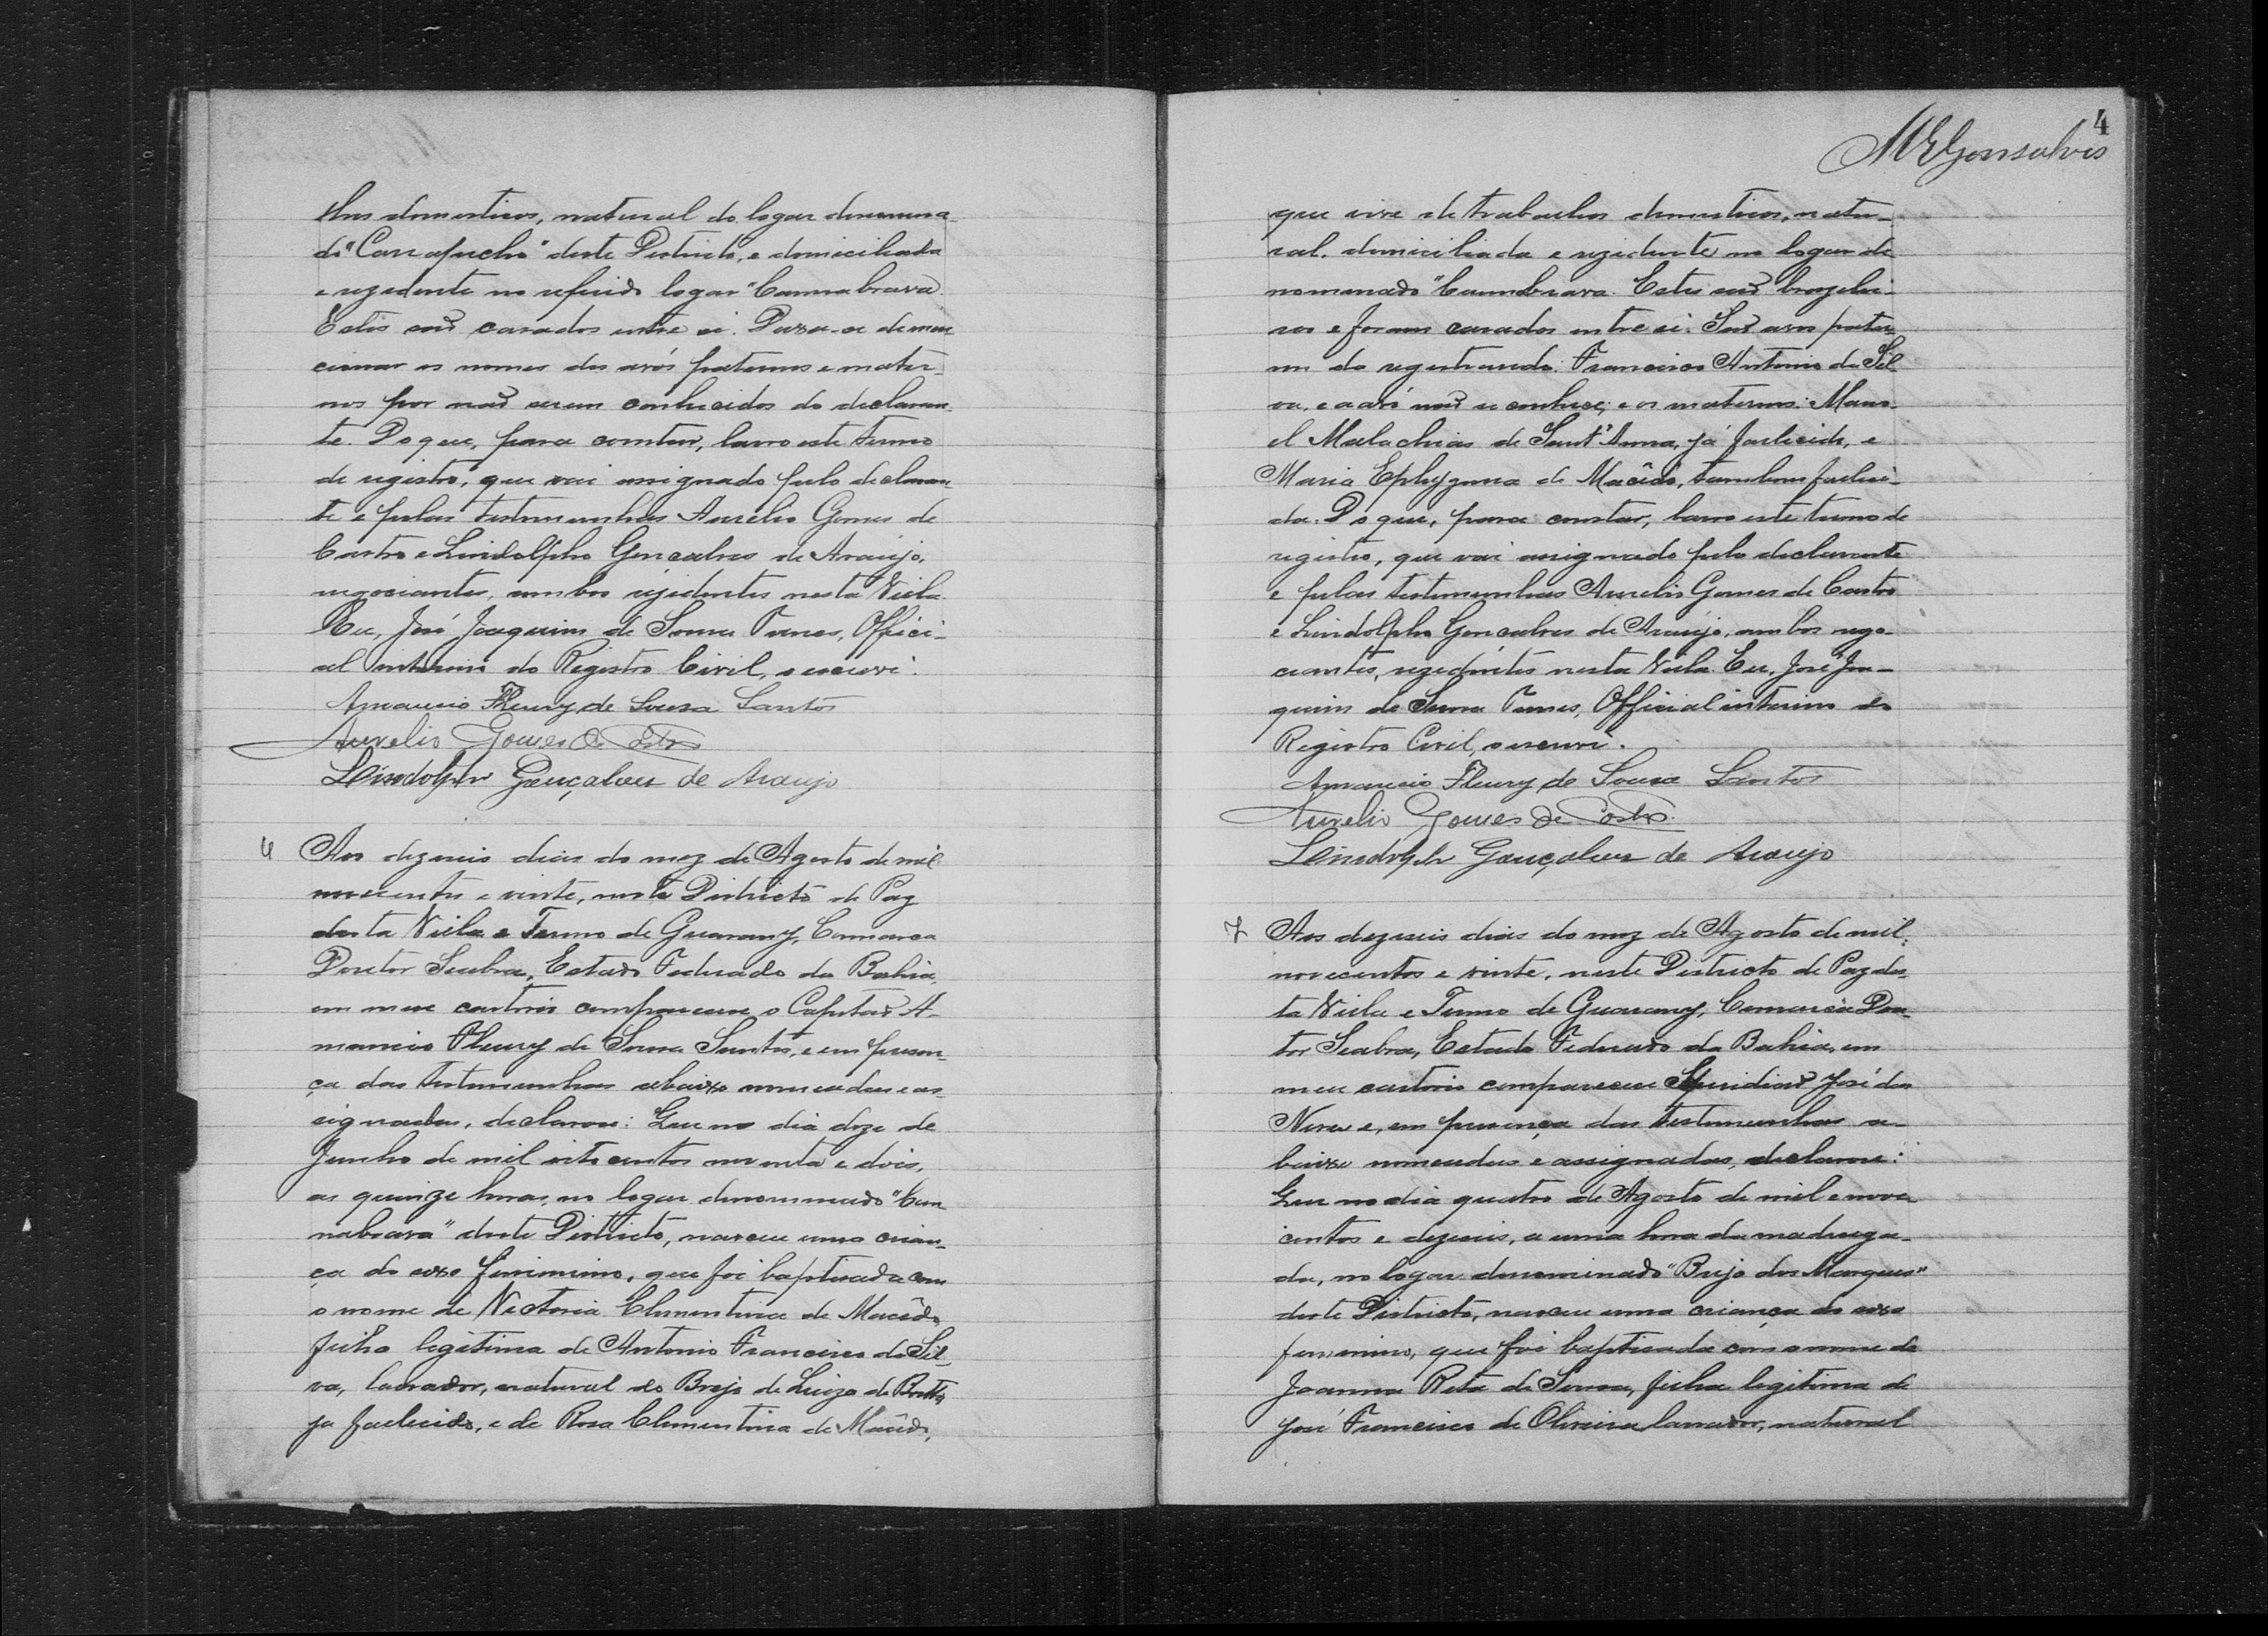 lhos domesticos, natural do logar denomina-
do "Carrapicho" deste Districto, e domiciliada
e rezedente no referido logar "Cannabrava.
Estes são casados entre si. Deixa-se de men
cionar os nomes dos avós paternos e mater-
nos por não serem conhecidos do declaran-
te. Do que, para constar, lavro este termo
de registro, que vai assignado pelo declaran
te e pelas testemunhas Aurelio Gomes de
Castro e Lindolpho Gonçalves de Araujo,
negociantes, ambos rezidentes nesta Villa.
Eu, José Joaquim de Souza Tunes, Offici-
al interino do Registro Civil, o escrevi.
Amancio Fleury de Souza Santos
Aurelio Gomes de Castro
Lindolpho Gonçalves de Araujo
6 Aos dezeseis dias do mez de Agosto de mil
novecentos e vinte, neste Districto de Paz
desta Villa e Termo de Guarany, Comarca
Doutor Seabra, Estado Federado da Bahia,
em meu cartorio compareceu o Capitão A-
mancio Fleury de Souza Santos, e em presen-
ça das testemunhas abaixo nomeadas e as-
signadas, declarou: Que no dia doze de
Junho de mil oitocentos noventa e dois,
as quinze horas, no logar denominado "Can
nabrava" deste Districto, nasceu uma crian-
ça do sexo feminino, que foi baptisada com
o nome de Victoria Clementina de Macêdo
filha legitima de Antonio Francisco da Sil-
va, lavrador, natural do Brejo de Luiza de Britto,
ja fallecido, e de Rosa Clementina de Macêdo,
4
MEGonsalves
que vive de trabalhos domesticos, natu-
ral, domiciliada e rezidente no logar de
nomenado "Cannabrava. Estes são brazilei-
ros e foram casados entre si. São avos pater-
nos do registrando: Francisco Antonio da Sil-
va, e a avó não se conhece; e os maternos: Mano-
el Malachias de Sant'Anna, já fallecido, e
Maria Ephygenia de Macêdo, tambem falleci-
da. Do que, para constar, lavro este termo de
registro, que vai assignado pelo declarante
e pelas testemunhas Aurelio Gomes de Castro
e Lindolpho Gonçalves de Araujo, ambos nego-
ciantes, rezedentes nesta Villa. Eu, José Joa-
quim de Souza Tunes, Official interino do
Registro Civil, o escrevi.
Amancio Fleury de Souza Santos
Aurelio Gomes de Castro.
Lindolpho Gonçalves de Araujo
7 Aos dezeseis dias do mez de Agosto de mil,
novecentos e vinte, neste Districto de Paz des-
ta Villa e Termo de Guarany, Comarca Dou-
tor Seabra, Estado Federado da Bahia, em
meu cartorio compareceu Spiridião José das
Neves e, em presença das testemunhas a-
baixo nomeadas e assignadas, declarou:
Que no dia quatro de Agosto de mil e nove
centos e dezeseis, a uma hora da madruga-
da, no logar denominado "Brejo dos Marques"
deste Districto, nasceu uma criança do sexo
feminino, que foi baptisada com o nome de
Joanna Rita de Souza, filha legitima de
José Francisco de Oliveira lavrador, natural